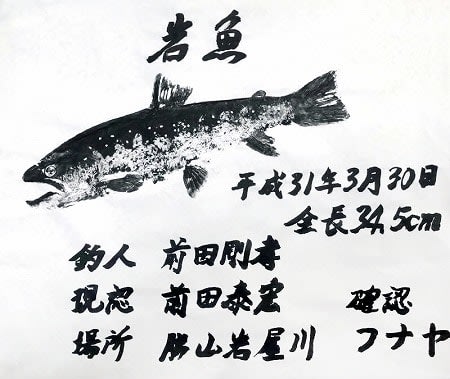 岩魚
平成31年3月30日
全長34.5cm
釣人 前田剛孝
現認 前田泰宏 確認
場所 勝山岩屋川 フナヤ